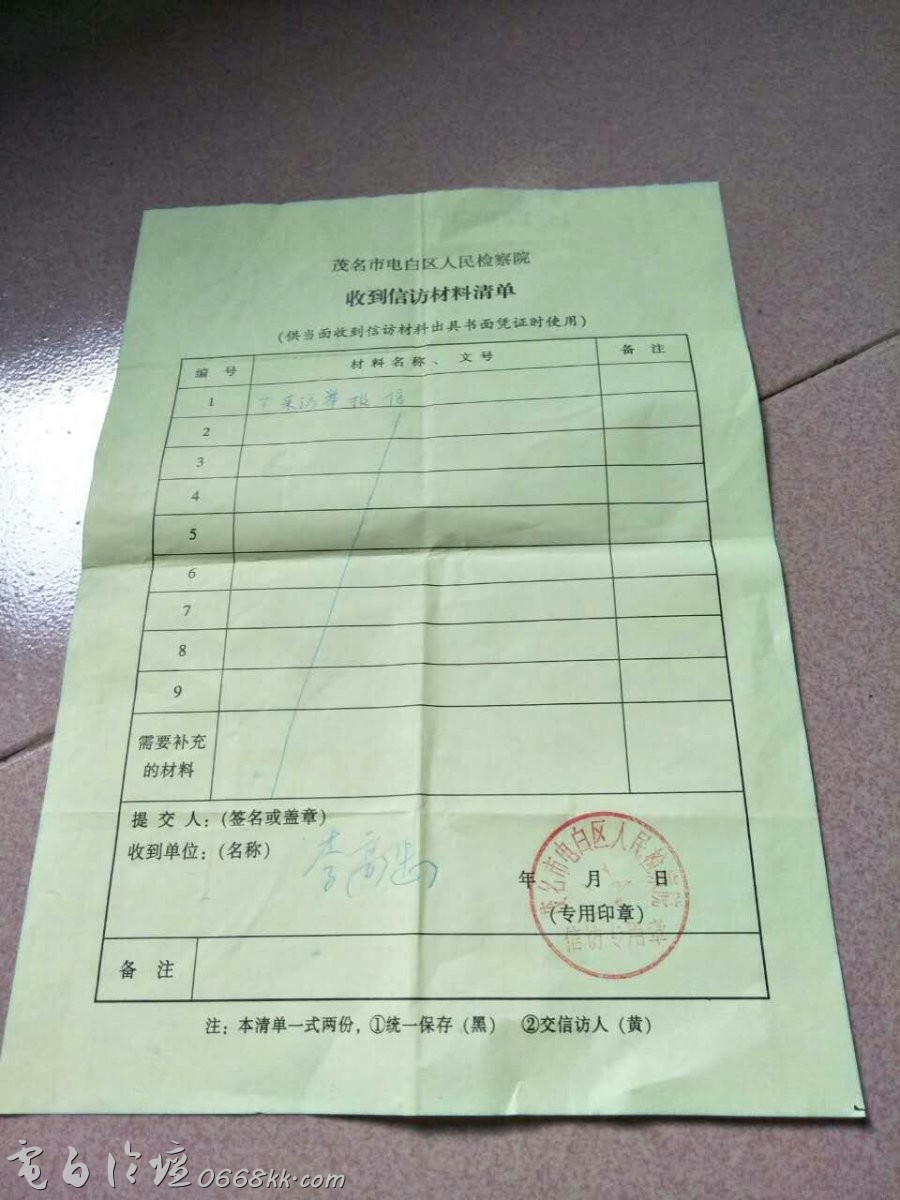 茂名市电白区人民检察院
收到信访材料清单
(供当面收到信访材料出具书面凭证时使用)
编 号 材料名称、 文号 备 注
1 举报信
2
3
4
5
6
7
8
9
需要补充
的材料
提 交 人：(签名或盖章)
收到单位：(名称) 李
年 月 日
(专用印章)
茂名市电白区人民检察院
信访专用章
备 注
注：本清单一式两份，①统一保存(黑) ②交信访人(黄)
電白论坛0668kk.com